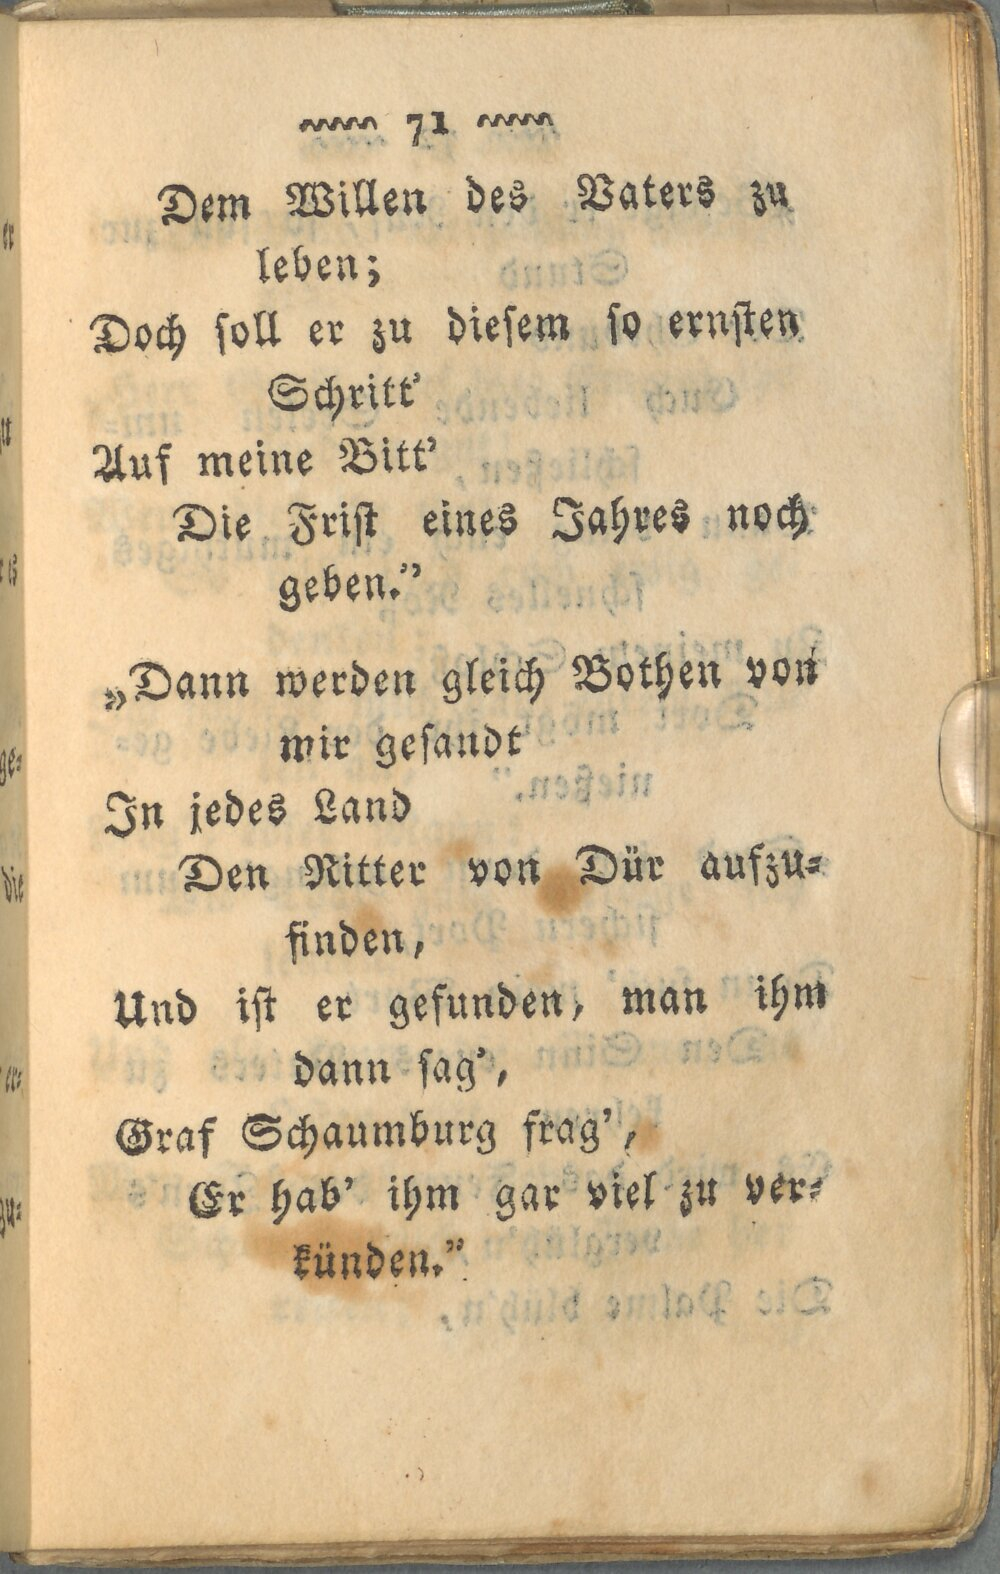 71
Dem Willen des Vaters zu
leben;
Doch soll er zu diesem so ernsten
Schritt'
Auf meine Bitt'
Die Frist eines Jahres noch
geben.”
„Dann werden gleich Bothen von
mir gesandt
In jedes Land
Den Ritter von Dür aufzu-
finden,
Und ist er gefunden, man ihm
dann sag',
Graf Schaumburg frag',
Er hab' ihm gar viel zu ver-
künden.”